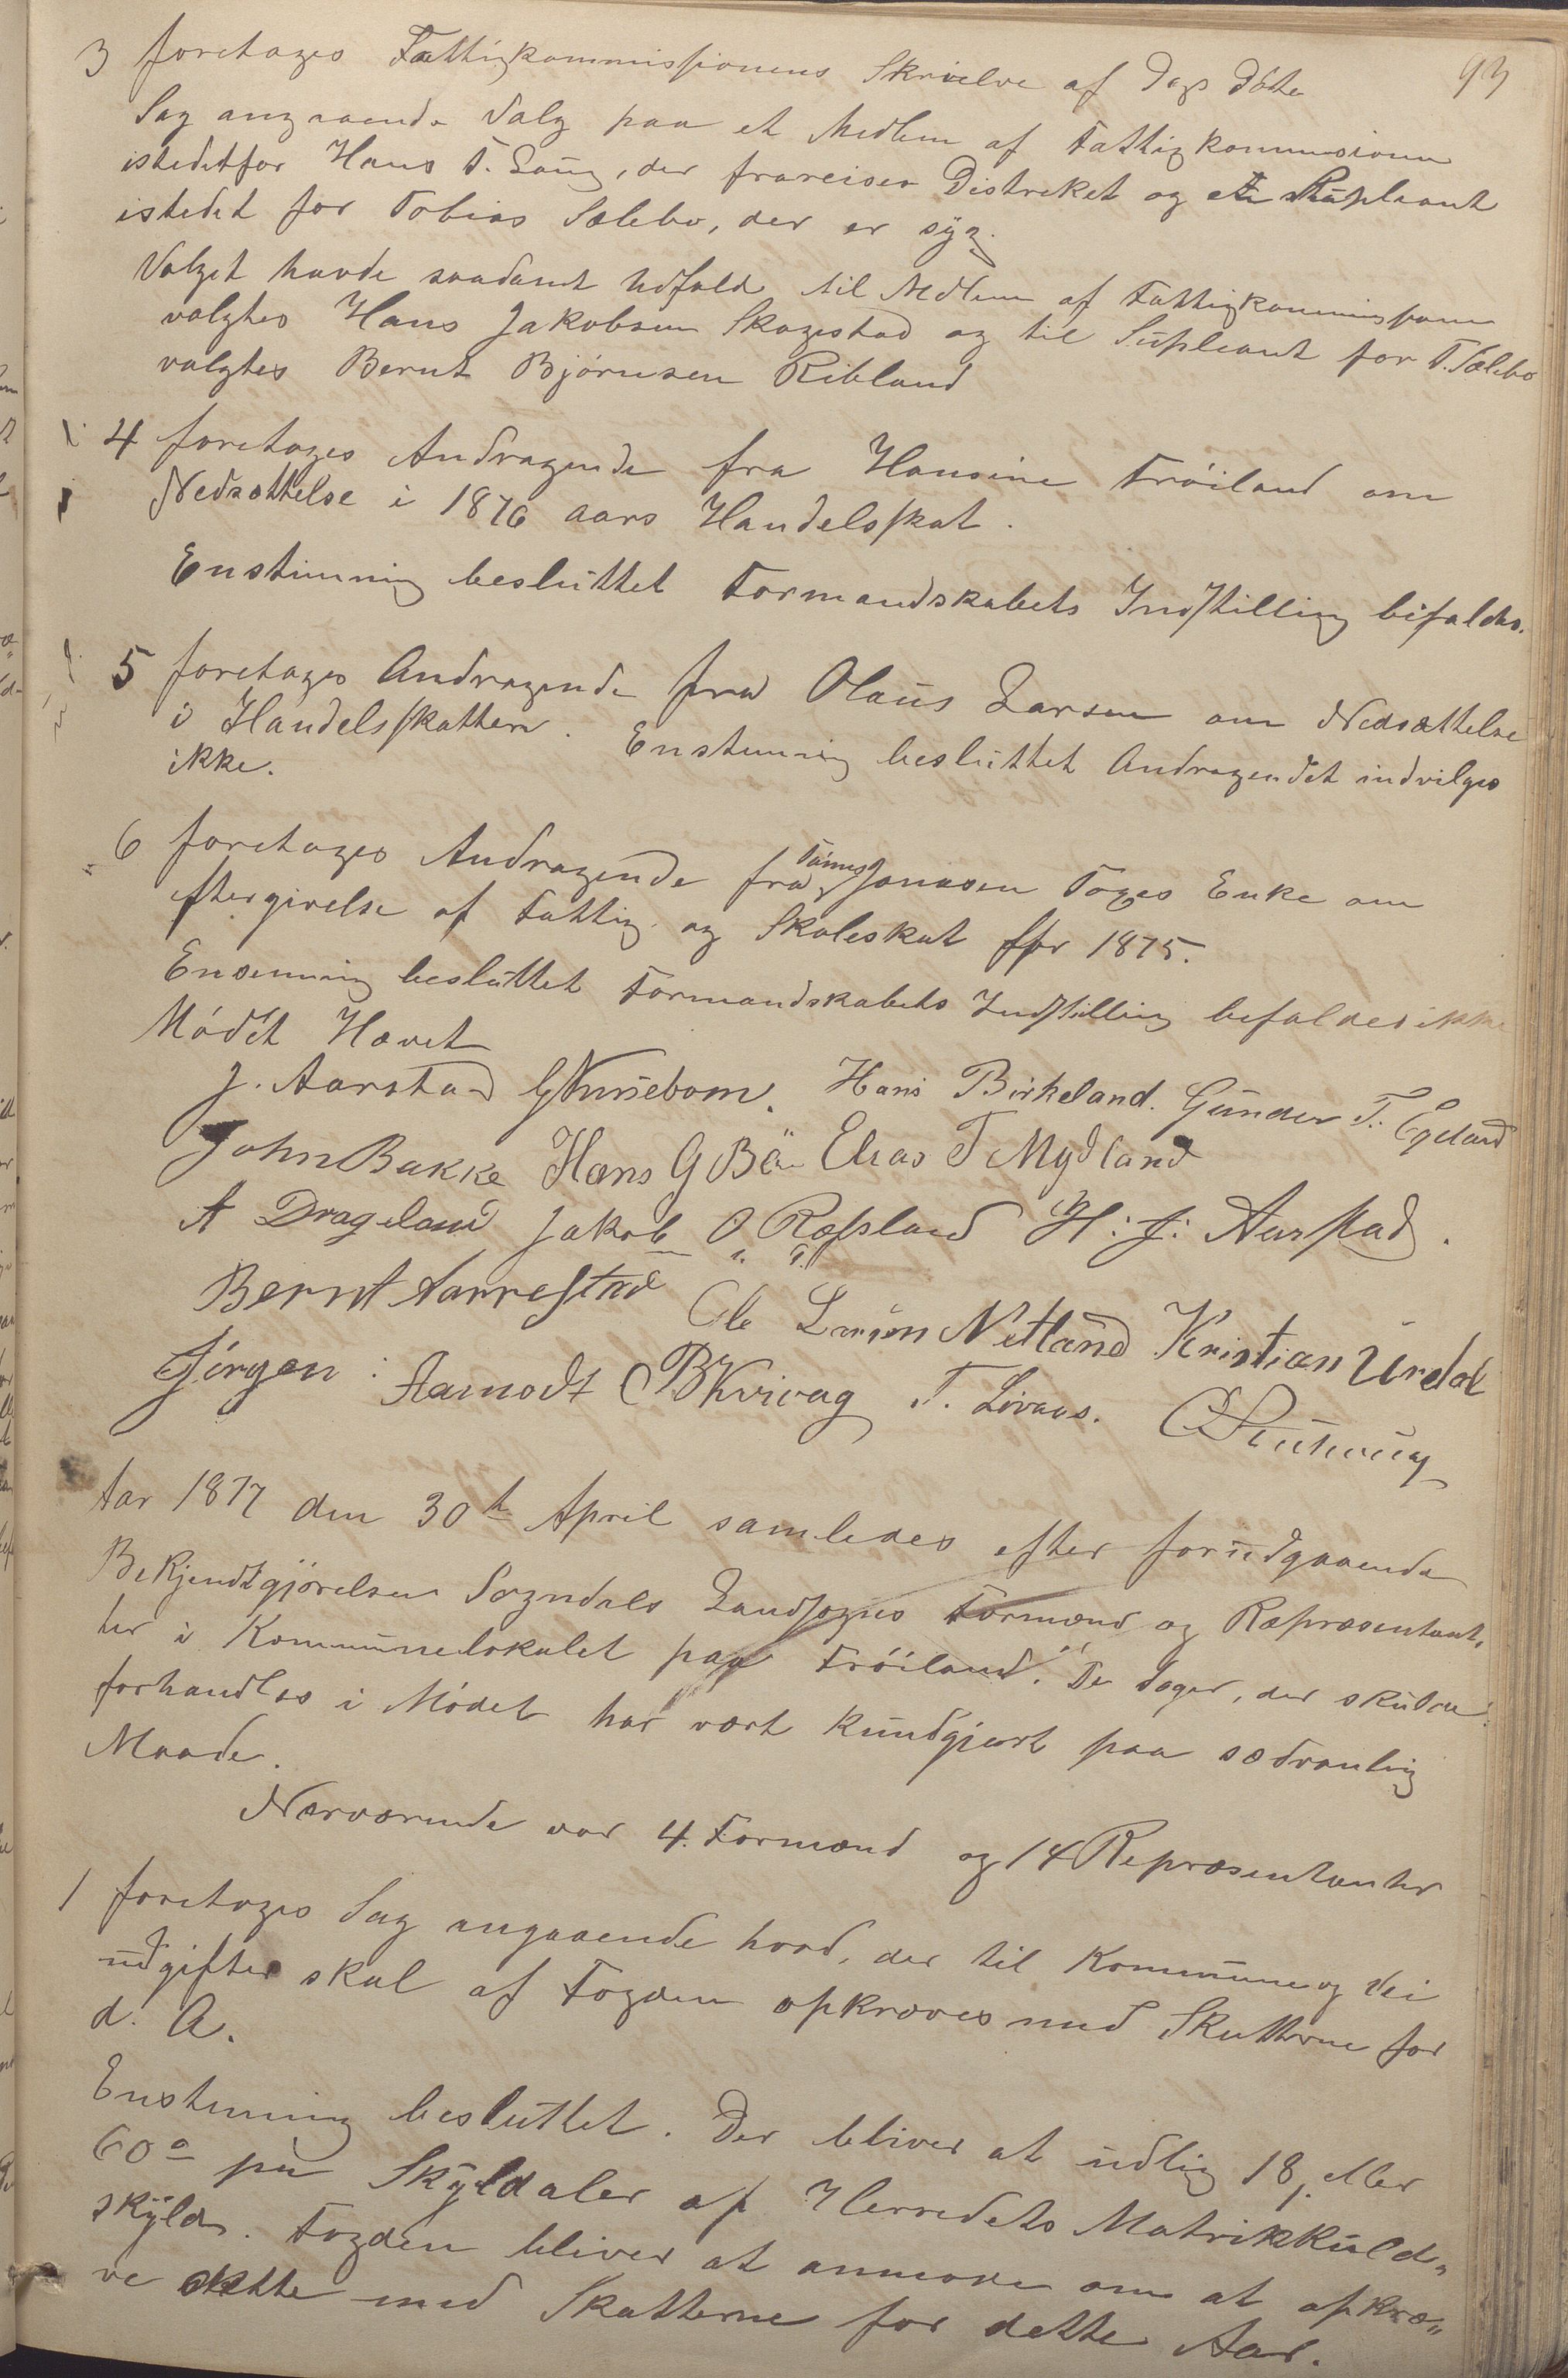 93
3 foretages Fattigkommissionens Skrivelse af Dags Dato
Sag angaaende Valg paa et Medlem af Fattigkommissionen
istedetfor Hans T. Soug, der frareiser Distriktet og en Supleant
istedet for Tobias Sælebo, der er syg.
Valget havde saadant Udfald til Medlem af Fattigkommissionen
valgtes Hans Jakobsen Skogestad og til Supleant for T. Sælebo
valgtes Bernt Bjørnsen Ribland
4 foretages Andragende fra Hansine Frøiland om
Nedsættelse i 1876 aars Handelsskat.
Enstimmig besluttet Formandskabets Indstilling bifaldes.
5 foretages Andragende fra Olaus Larsen om Nedsættelse
i Handelsskatten. Enstemmig besluttet Andragendet indvilges
ikke.
6 foretages Andragende fra Tønnes Jonasen Foges Enke om
eftergivelse af Fattig og Skoleskat for 1875.
Ensemmig besluttet Formandskabets Indstilling befaldes ikke
Mødet Hævet
J. Aarstad Hans Birkeland. Gunder T. Egeland
John Bakke Hans G Bø Elias T Mydland
A Drageland Jakob O Ræpsland H: J: Aarstad.
Bernt Aarrestad Ole Larsen Netland Kristian Urdal
Jørgen Aamodt B Kvivag T. Lovaas.
Aar 1877 den 30te April samledes efter forudgaaende
Bekjendtgjørelsen Sogndals Landsogns Formænd og Repræsentant,
ter i Kommunelokalet paa Frøiland. De Sager, der skulde
forhandles i Mødet har vært kundgjort paa sædvanlig
Maade.
Nærværende var 4. Formænd og 14 Repræsentanter
1 foretages Sag angaaende hvad, der til Kommune og Vei
udgifter skal af Fogden opkræves med Skatterne for
d. A.
Enstemmig besluttet. Der bliver at udlig 18, eller
60 ø pr Skylddaler af Herredets Matrikkuld„
skyld. Fogden bliver at anmode om at opkræ„
ve dette med Skatterne for dette Aar.